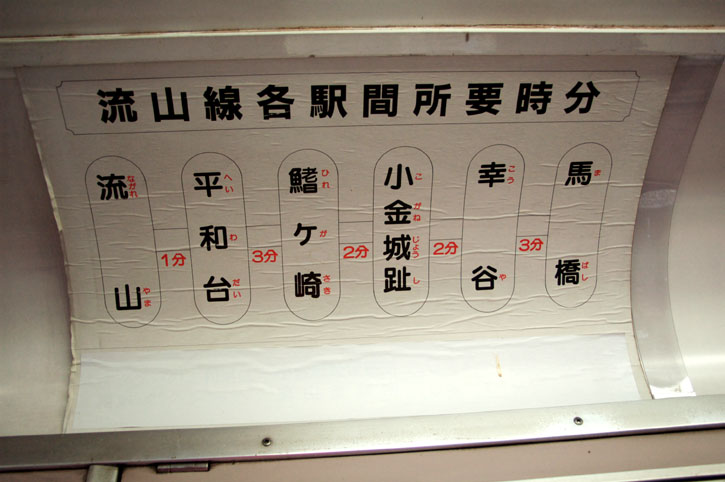 流山線各駅間所要時分
流山
ながれやま
1分
平和台
へいわだい
3分
鰭ヶ崎
ひれがさき
2分
小金城趾
こがねじょうし
2分
幸谷
こうや
3分
馬橋
まばし